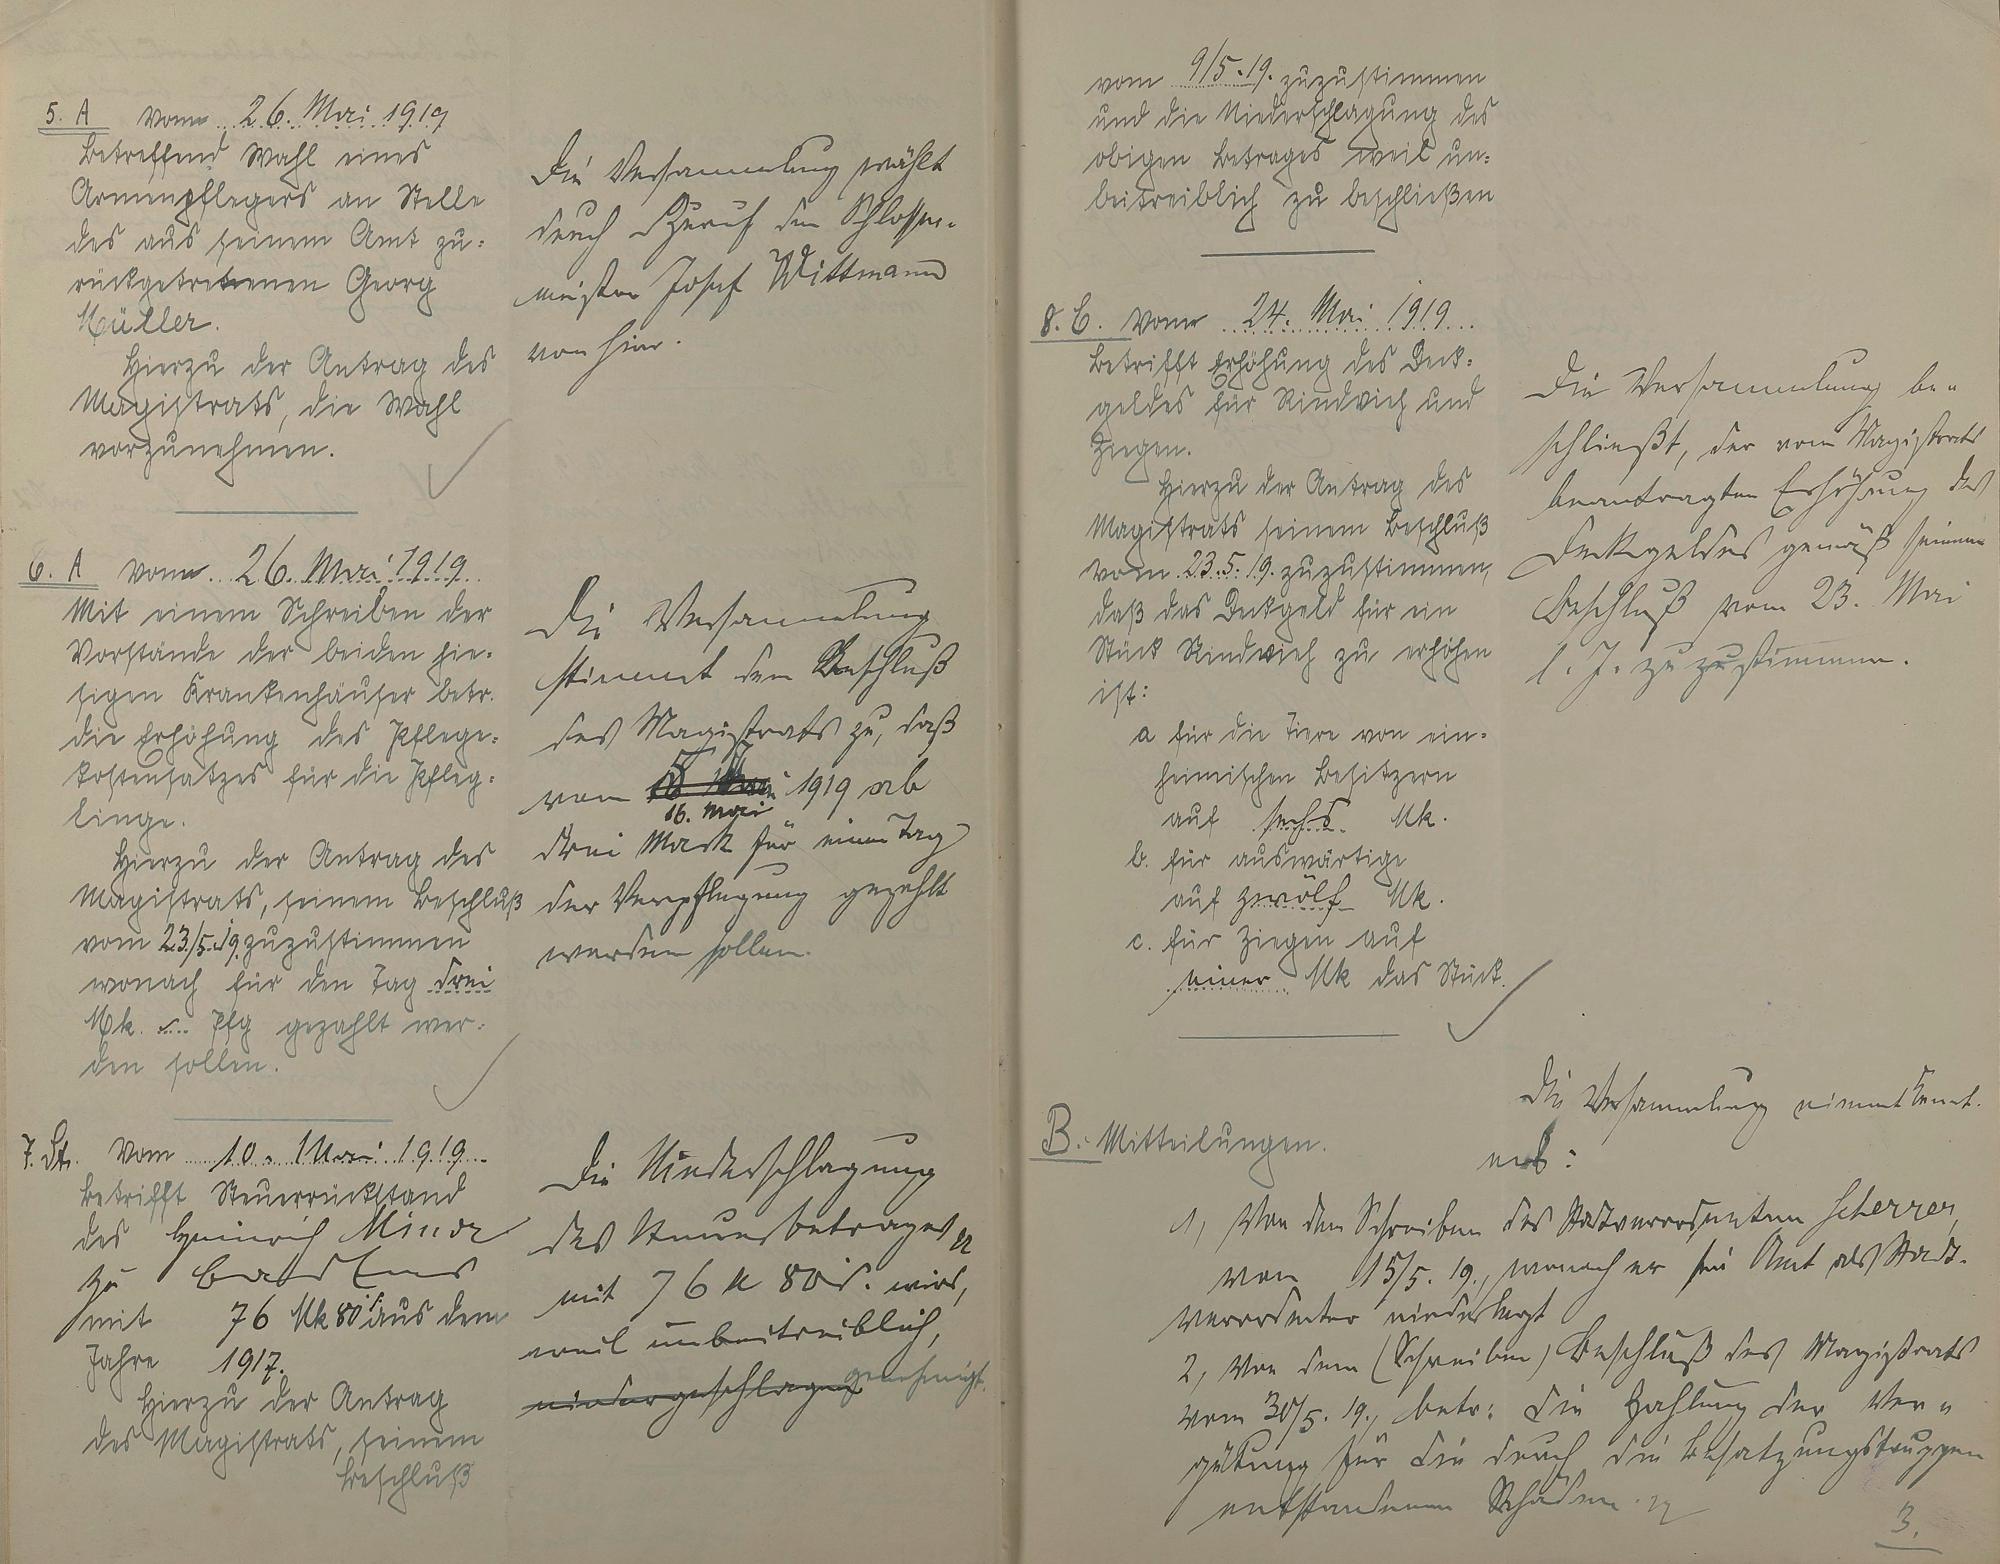 5. A vom 26. Mai 1919
Betreffend Wahl eines
Armenpflegers an Stelle
des aus seinem Amt zu-
rückgetretenen Georg
Müller.
Hierzu der Antrag des
Magistrats, die Wahl
vorzunehmen.
Die Versammlung wählt
durch Zuruf den Schlosser-
meister Josef Wittmann
von hier.
6. A vom 26. Mai 1919
Mit einem Schreiben der
Vorstände der beiden hie-
sigen Krankenhäuser betr.
die Erhöhung des Pflege-
kostensatzes für die Pfleg-
linge.
Hierzu der Antrag des
Magistrats, seinem Beschluß
vom 23/5.19. zuzustimmen
wonach für den Tag drei
Mk. Pfg gezahlt wer-
den sollen.
Die Versammlung
stimmt dem Beschluß
des Magistrats zu, daß
vom 1919 ab
16. Mai
drei Mark für einen Tag
der Verpflegung gezahlt
werden sollen.
7. St. Vom 10. Mai 1919
Betrifft Steuerrückstand
des Heinrich Minor
zu Bad Ems
mit 76 Mk 80 aus dem
Jahre 1917.
Hierzu der Antrag
des Magistrats, seinem
Beschluß
Die Niederschlagung
des Steuerbetrages
mit 76 M 80 wird,
weil unbeitreiblich,
niedergeschlagen genehmigt.
vom 9/5.19. zuzustimmen
und die Niederschlagung des
obigen Betrages weil un-
beitreiblich zu beschließen
8. C. vom 24. Mai 1919
Betrifft Erhöhung des Deck-
geldes für Rindvieh und
Ziegen.
Hierzu der Antrag des
Magistrats seinem Beschluß
vom 23.5.19. zuzustimmen,
daß das Deckgeld für ein
Stück Rindvieh zu erhöhen
ist:
a für die Tiere von ein-
heimischen Besitzern
auf sechs Mk.
b. für auswärtige
auf zwölf Mk.
c. für Ziegen auf
einer Mk das Stück.
Die Versammlung be-
schließt, der vom Magistrats
beantragten Erhöhung des
Deckgeldes gemäß seinem
Beschluß vom 23. Mai
l. J. zu zustimmen.
B. Mitteilungen.
Die Versammlung nimmt Kennt-
nis:
1, Von dem Schreiben des Stadtverordneten Scherrer,
von 15/5. 19., wonach er sein Amt als Stadt-
verordneter niederlegt
2, Von dem (Schreiben) Beschluß des Magistrats
vom 30/5. 19., betr: die Zahlung der Ver-
gütung für die durch die Besatzungstruppen
entstandenen Schäden.
3.